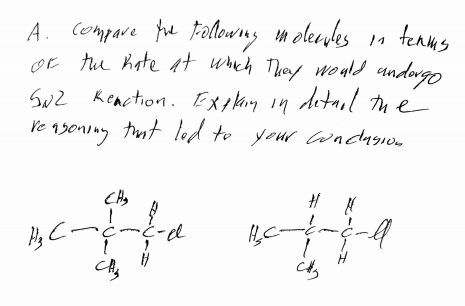 A. Compare the following molecules in terms
of the Rate at which They would undergo
SN2 Reaction. Explain in detail the
reasoning that led to your conclusion
CH3 H H H
H3C-C-C-Cl H3C-C-C-Cl
CH3 H CH3 H